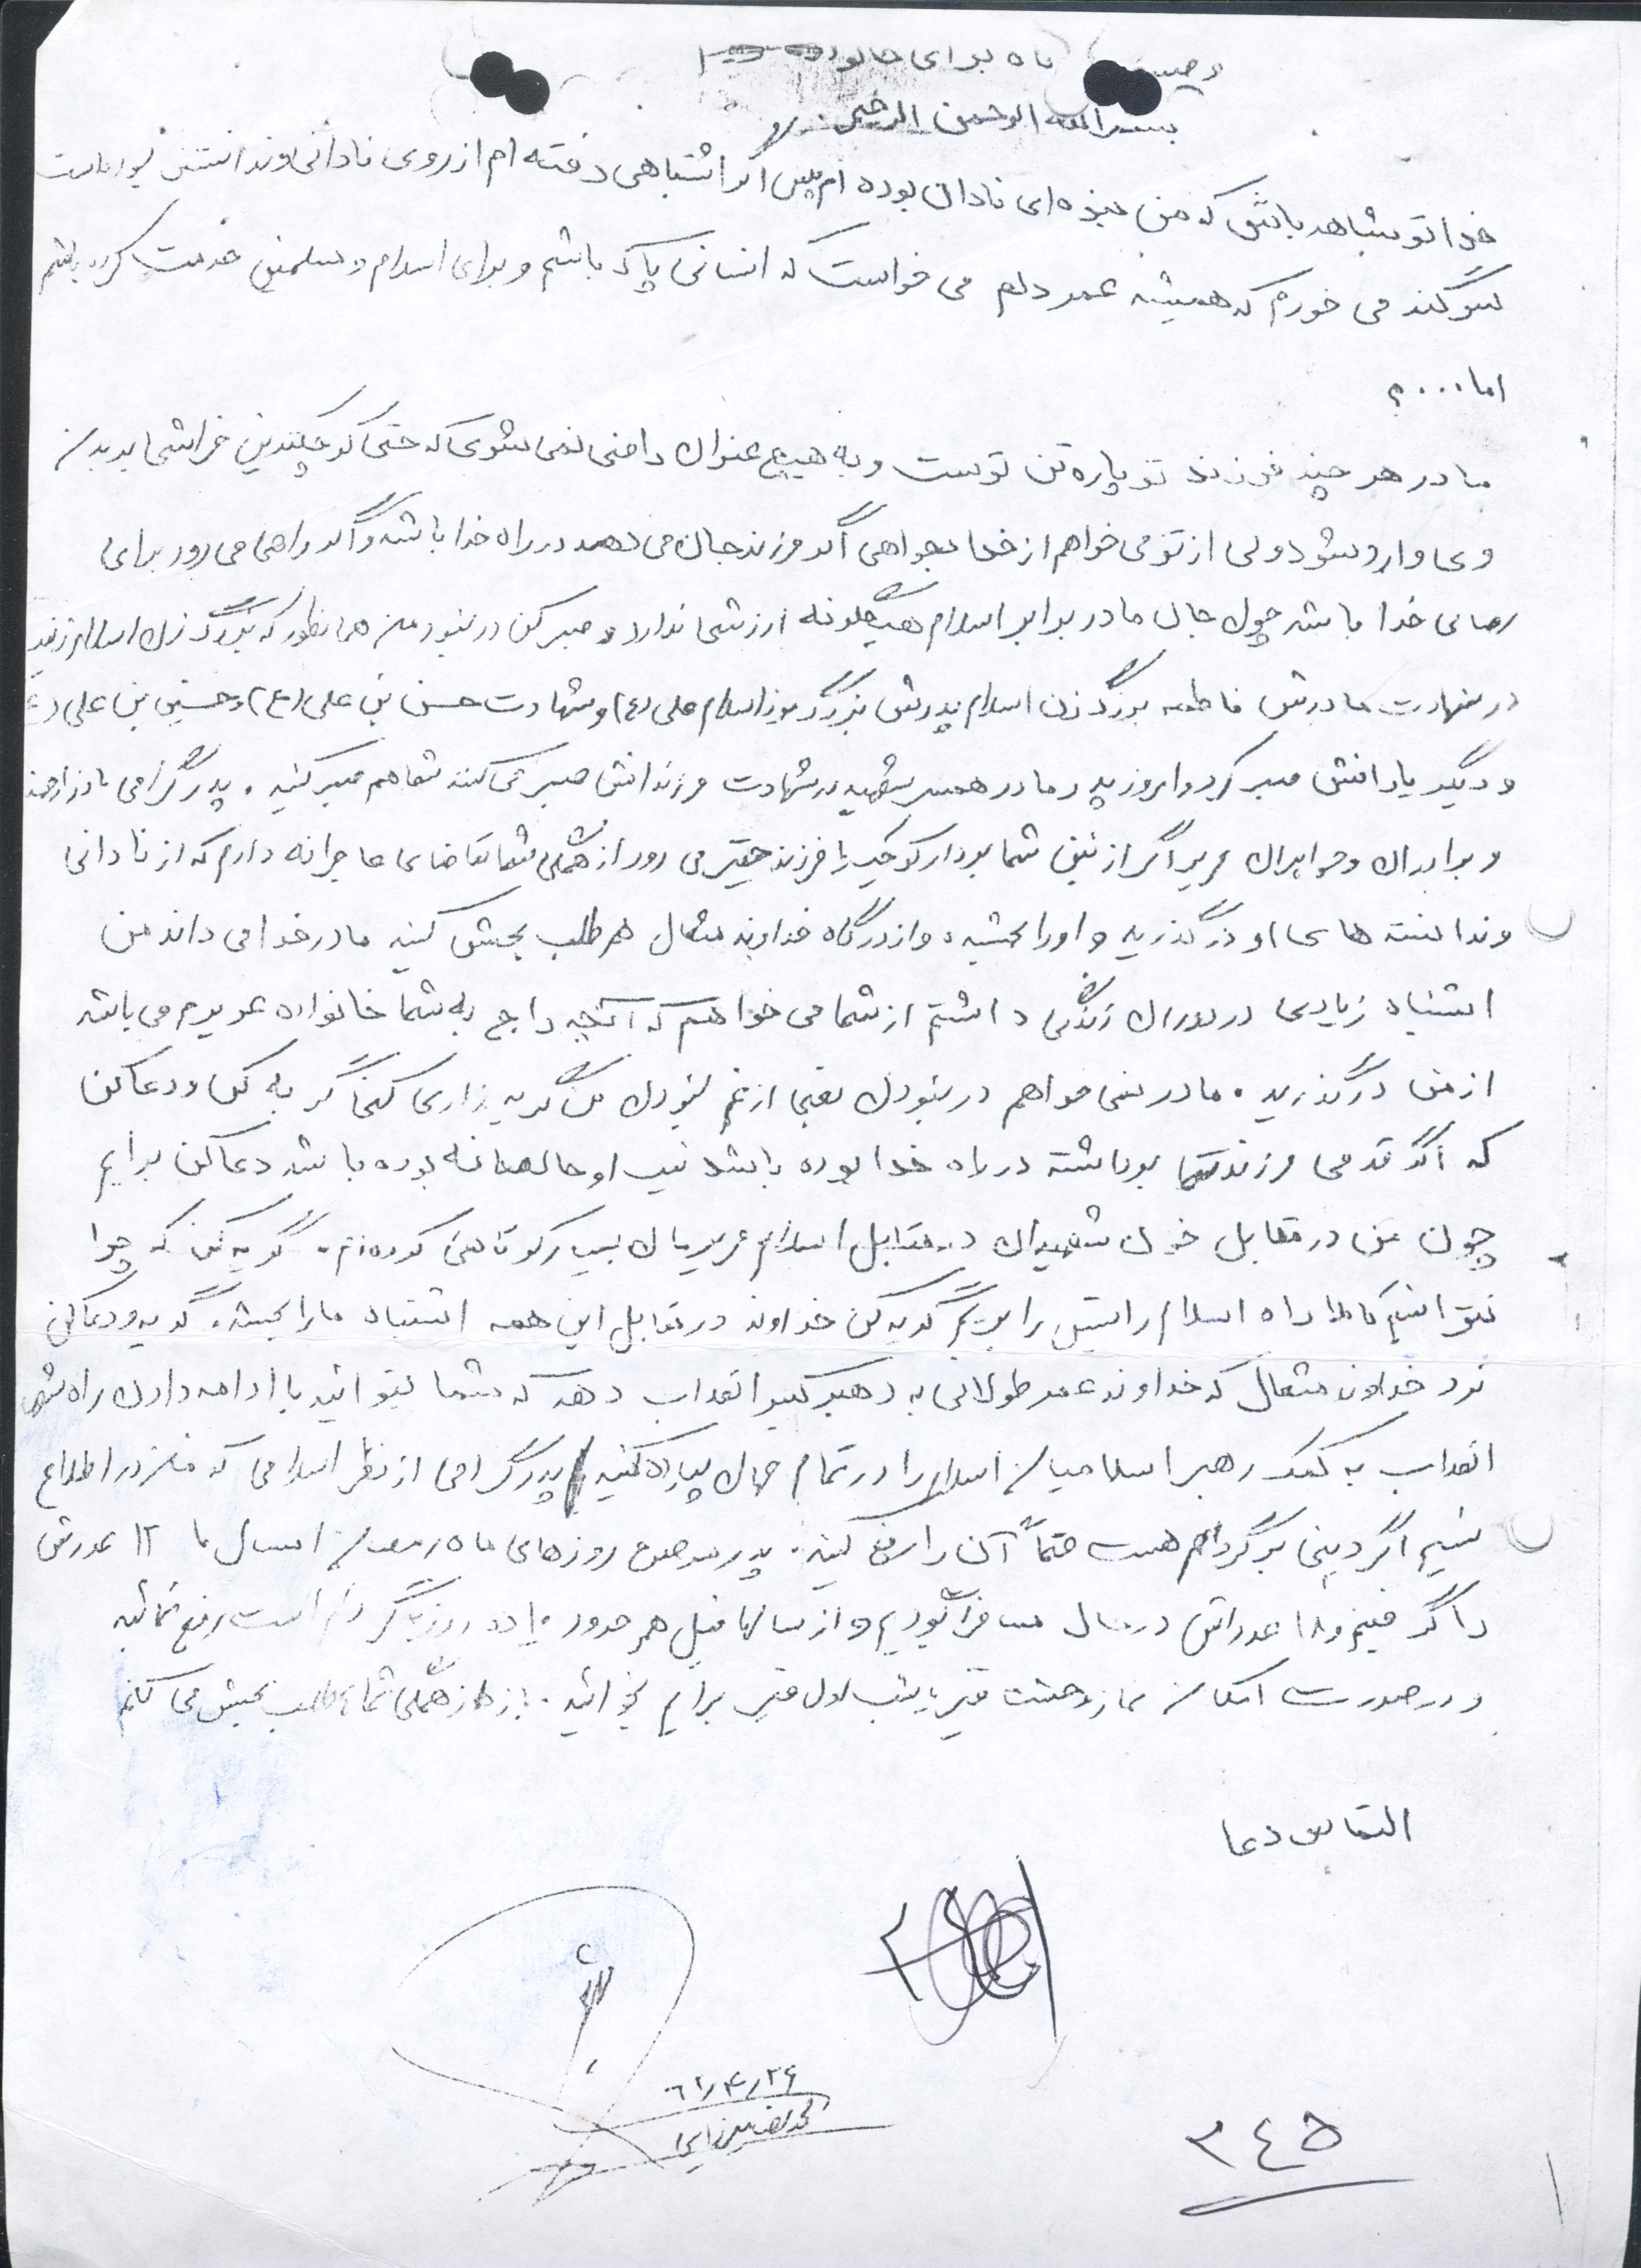 وصیت نامه برای خانواده
بسم الله الرحمن الرحیم
خدا تو شاهد باش که من بنده ای نادان بوده ام پس اگر اشتباهی رفته ام از روی نادانی و ندانستن بوده است
سوگند می خورم که همیشه عمر دلم می خواست که انسانی پاک باشم و برای اسلام و مسلمین خدمت کرده باشم
اما....؟
مادر هر چند فرزند تو پاره تن توست و به هیچ عنوان راضی نمی شوی که حتی کوچکترین خراشی به بدن
وی وارد شود ولی از تو می خواهم از خدا بخواهی اگر فرزند جان می دهد در راه خدا باشد و اگر راهی می رود برای
رضای خدا باشد چون جان ما در برابر اسلام هیچگونه ارزشی ندارد و صبر کن در نبود من همانطور که بزرگ زن اسلام زینب
در شهادت مادرش فاطمه بزرگ زن اسلام پدرش بزرگ مرد اسلام علی (ع) و شهادت حسن بن علی (ع) و حسین بن علی (ع
و دیگر یارانش صبر کرد و امروز پدر مادر همسر شهید در شهادت فرزندانش صبر می کنند شما هم صبر کنید . پدر گرامی مادر ارجمند
و برادران و خواهران عزیز اگر از بین شما برادر کوچک یا فرزند حقیر می رود از همگی شما تقاضای عاجزانه دارم که از نادانی
و ندانسته های او درگذرید و او را بخشیده و از درگاه خداوند متعال هم طلب بخشش کنید مادر خدا می داند من
اشتباه زیادی در دوران زندگی داشتم از شما می خواهم که آنچه راجع به شما خانواده عزیزم می باشد
از من درگذرید . مادر نمی خواهم در نبودن یعنی از غم نبودن من گریه زاری کنی گریه کن و دعا کن
که اگر قدمی فرزند شما برداشته در راه خدا بوده باشد نیت او خالصانه بوده باشد دعا کن برایم
چون من در مقابل خون شهیدان در مقابل اسلام عزیزمان بسیار کوتاهی کرده ام . گریه کن که چرا
نتوانستیم کاملا راه اسلام راستین را برویم گریه کن خداوند در مقابل این همه اشتباه ما را بخشد . گریه و دعا کن
نزد خداوند متعال که خداوند عمر طولانی به رهبر کبیر انقلاب دهد که شما بتوانید با ادامه دادن راه
انقلاب به کمک رهبر اسلام را در تمام جهان پیاده کنید پدر گرامی از نظر اسلامی که من در اطلاع
نیستم اگر دینی بر گردنم هست حتماً آن را رفع کنید . پدر در موضوع روزهای ماه رمضان امسال ما ۱۲ عدد
را گرفتیم و ۱۸ عدد اش در حال مسافرت بودیم و از سالها قبل هم حدود ده روز بر گردنم است رفع نمائید
و در صورت امکان نماز وحشت قبر یا شب اول قبر برایم بخوانید . باز از همگی شما طلب بخشش می کنم
التماس دعا
۶۱/۴/۲۶
۳۴۵